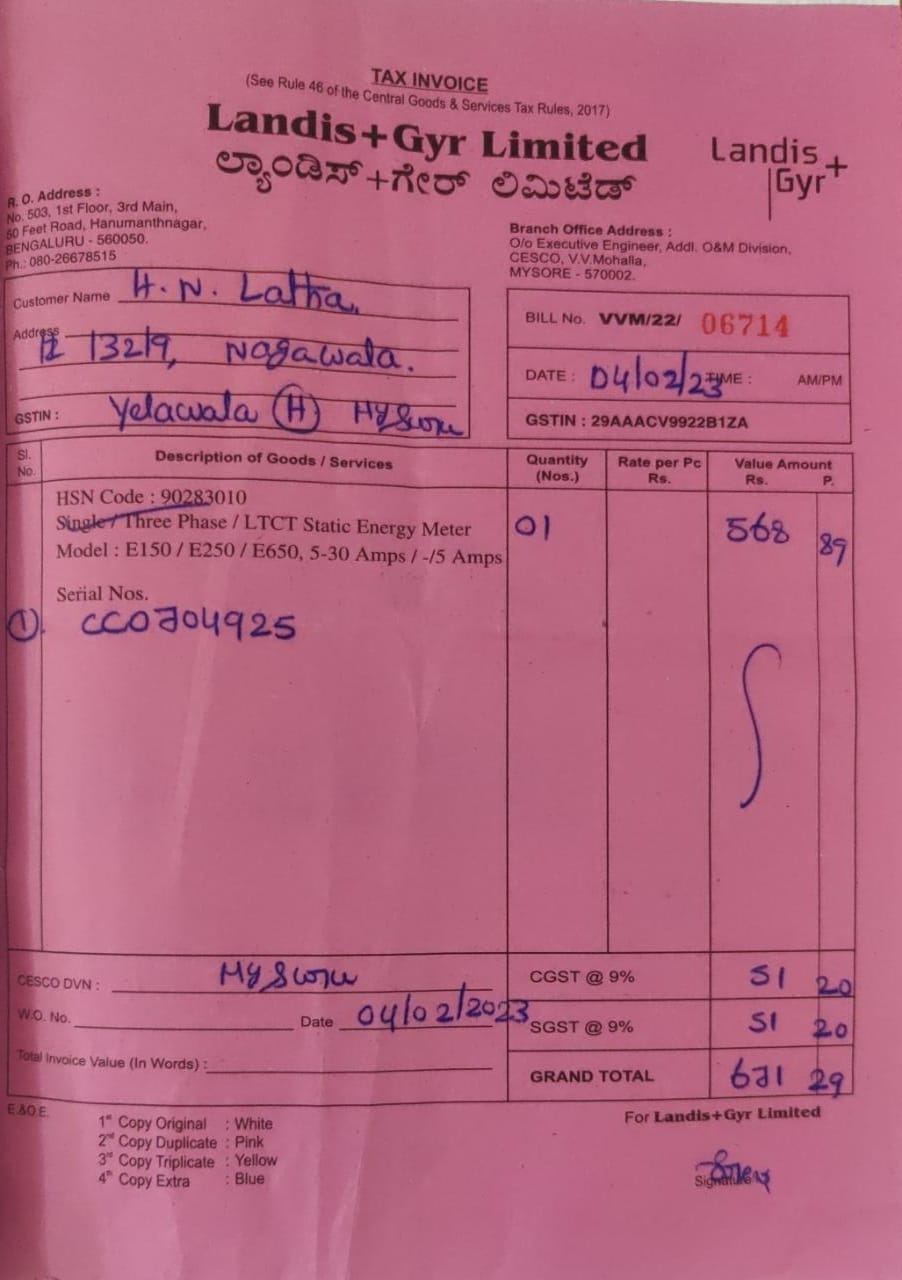 TAX INVOICE
(See Rule 46 of the Central Goods & Services Tax Rules, 2017)
Landis+Gyr Limited
ಲ್ಯಾಂಡಿಸ್+ಗೇರ್ ಲಿಮಿಟೆಡ್
Landis
Gyr+
R. O. Address :
No. 503, 1st Floor, 3rd Main,
60 Feet Road, Hanumanthnagar,
BENGALURU - 560050.
Ph.: 080-26678515
Branch Office Address :
O/o Executive Engineer, Addl. O&M Division,
CESCO, V.V.Mohalla,
MYSORE - 570002.
Customer Name H. N. Latha,
Address 12/3219, Nagawala.
GSTIN : Yelawala (H) Mysore
BILL No. VVM/22/ 06714
DATE : 04/02/23 TIME : AM/PM
GSTIN : 29AAACV9922B1ZA
Sl. No. Description of Goods / Services Quantity (Nos.) Rate per Pc Rs. Value Amount Rs. P.
HSN Code : 90283010
Single / Three Phase / LTCT Static Energy Meter 01 568 89
Model : E150 / E250 / E650, 5-30 Amps / -/5 Amps
Serial Nos.
1. CC0704925
CESCO DVN : Mysore CGST @ 9% 51 20
W.O. No. Date 04/02/2023 SGST @ 9% 51 20
Total Invoice Value (In Words) : GRAND TOTAL 671 29
E.&O.E.
1st Copy Original : White
2nd Copy Duplicate : Pink
3rd Copy Triplicate : Yellow
4th Copy Extra : Blue
For Landis+Gyr Limited
Signature